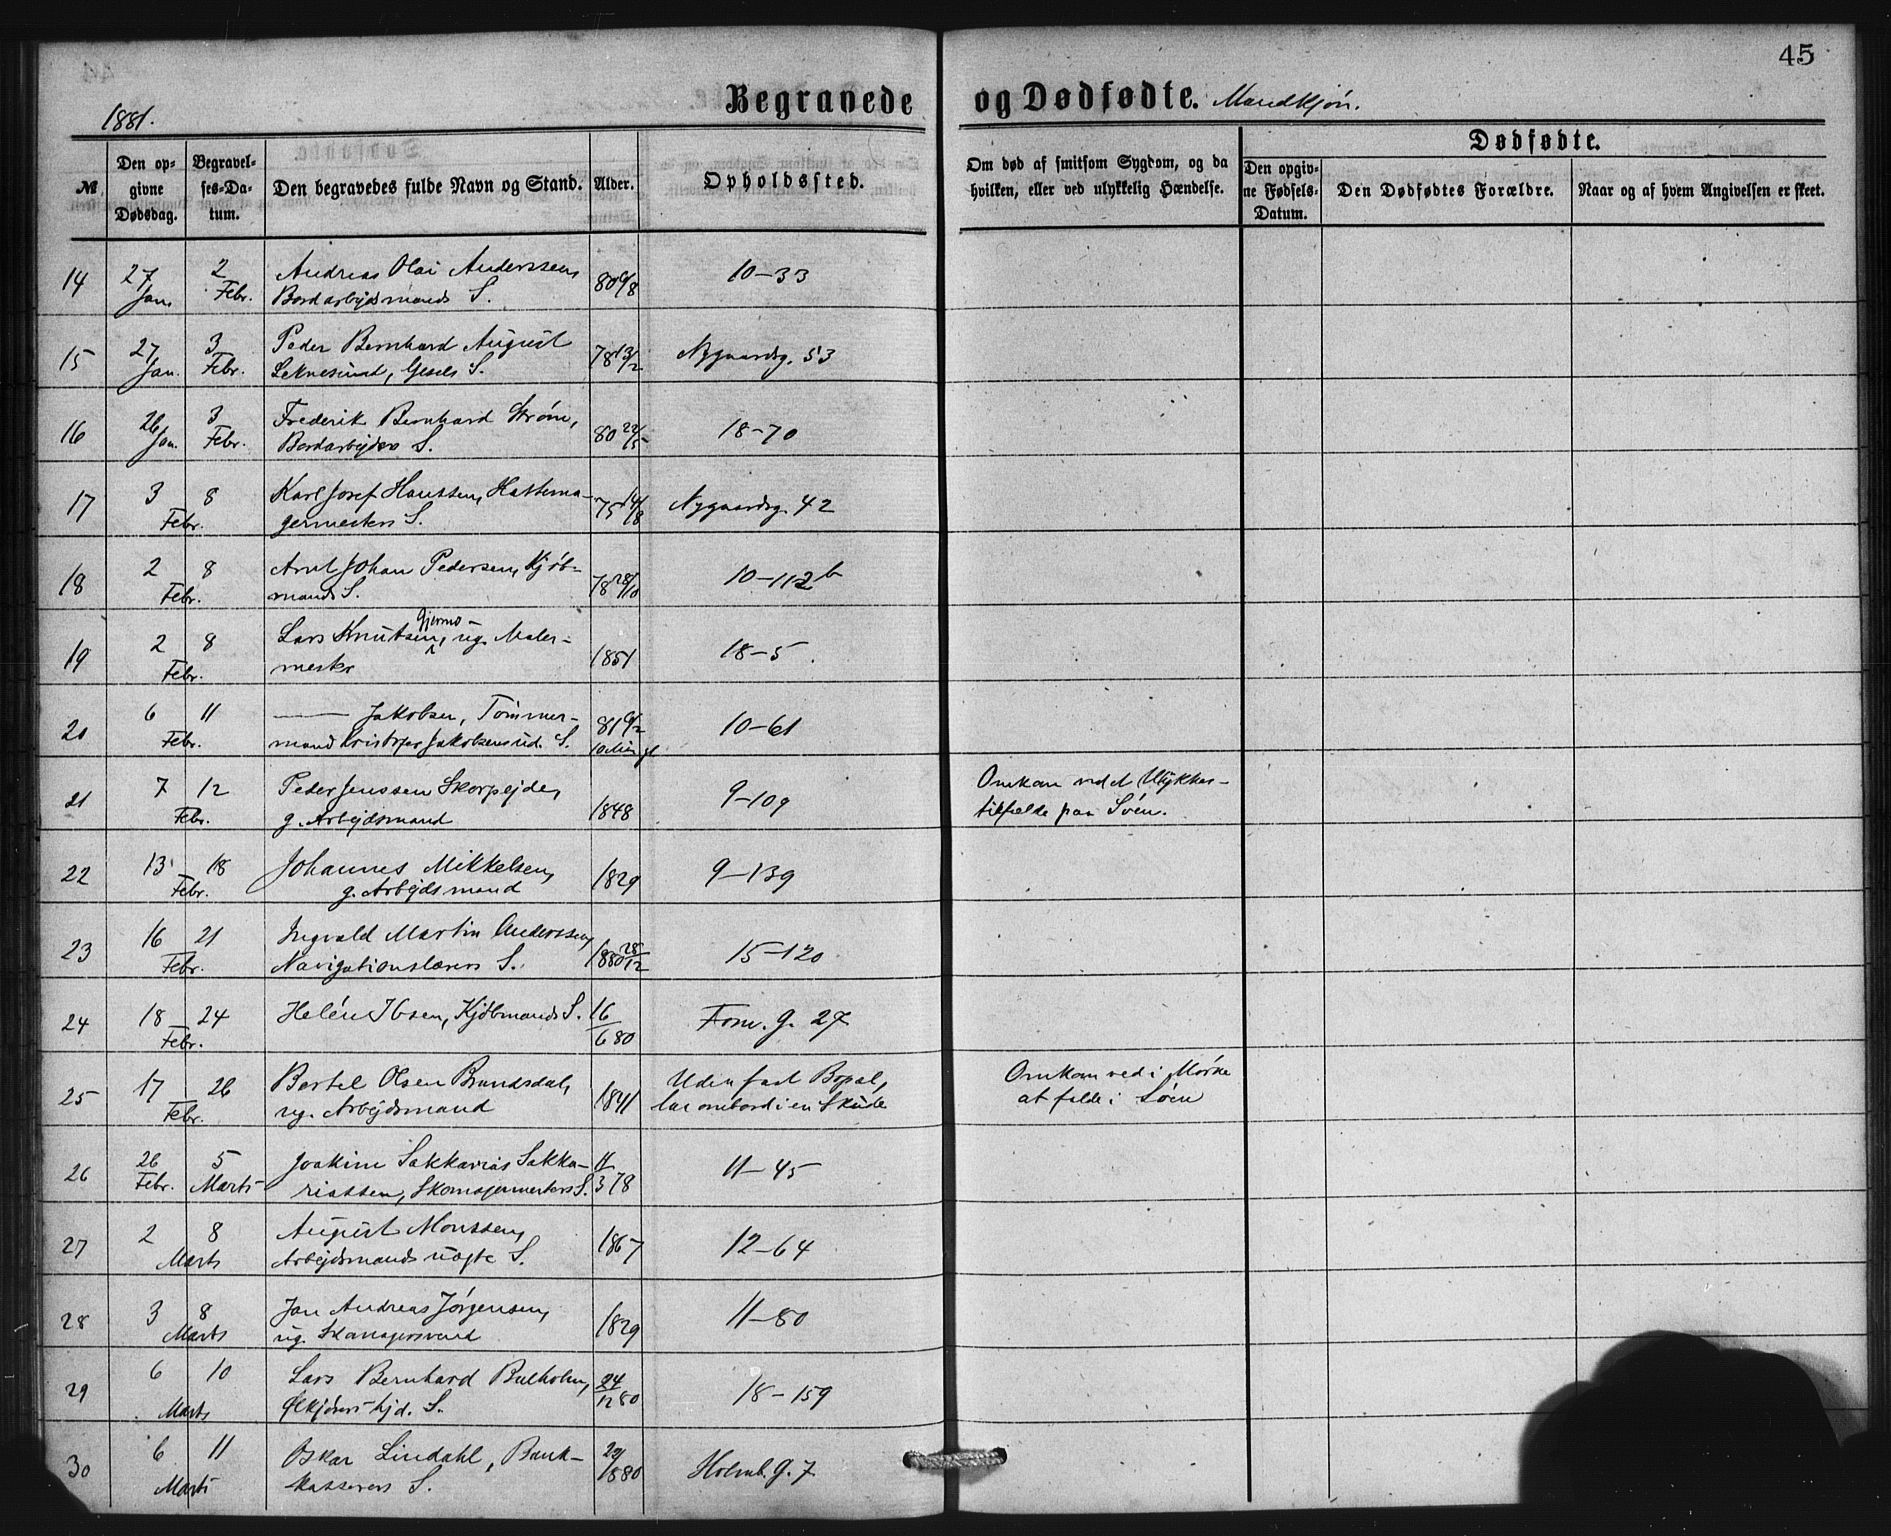 45
1881.
Begravede og Dødfødte. Mandkjøn.
Dødfødte.
№
Den opgivne Dødsdag.
Begravelses-Datum.
Den begravedes fulde Navn og Stand.
Alder.
Opholdssted.
Om død af smitsom Sygdom, og da hvilken, eller ved ulykkelig Hændelse.
Den opgivne Fødsels-Datum.
Den Dødfødtes Forældre.
Naar og af hvem Angivelsen er skeet.
14 27 Jan. 2 Febr. Andreas Olai Anderssen, 80 9/8 10-33
Bordarbejdsmands S.
15 27 Jan. 3 Febr. Peder Bernhard August 78 13/2 Nygaardsg. 53
S.
16 26 Jan. 3 Febr. Frederik Bernhard Strøm, 80 22/5 18-70
Bordarbejders S.
17 3 8 Febr. Karl Josef Hanssen, Hattema- 75 14/8 Nygaardsg. 42
germesters S.
18 2 8 Febr. Arnt Johan Pedersen, Kjøb- 78 28/10 10-112b
mands S.
19 2 8 Febr. Lars Knutsen Gjermo-, ug. Maler- 1851 18-5.
mester
20 6 11 Febr. Jakobsen, Tømmer- 81 6/2 10-61
mand Kristofer Jakobsens ud. S. 10 Min. gl
21 7 12 Febr. Peder Jenssen Skorpejde, 1848 9-109 Omkom ved et Ulykkes-
g. Arbejdsmand tilfælde paa Søen.
22 13 18 Febr. Johannes Mikkelsen, 1829 9-139
g. Arbejdsmand
23 16 21 Febr. Ingvald Martin Anderssen, 1880 28/12 15-120
Navigationslærers S.
24 18 24 Febr. Helén Ibsen, Kjøbmands S. 16/6 80 Fosw. G. 27
25 17 26 Febr. Bertel Olsen Brundsdal, 1841 Uden fast Bopæl, Omkom ved i Mørke
ug. Arbejdsmand laa ombord i en Skude at falde i Søen
26 26 Febr. 5 Marts Joakim Sakkarias Sakka- 11/3 78 11-45
riassen, Skomagermesters S.
27 2 8 Marts August Monssen, 1867 12-64
Arbejdsmands uægte S.
28 3 8 Marts Jan Andreas Jørgensen, 1829 11-80
ug. Skomagersvend
29 6 10 Marts Lars Bernhard Bulholm, 24/12 80 18-159
Ølkjørers S.
30 6 11 Marts Oskar Lindahl, Bank- 22/1880 Holmb. G. 7
kasserers S.